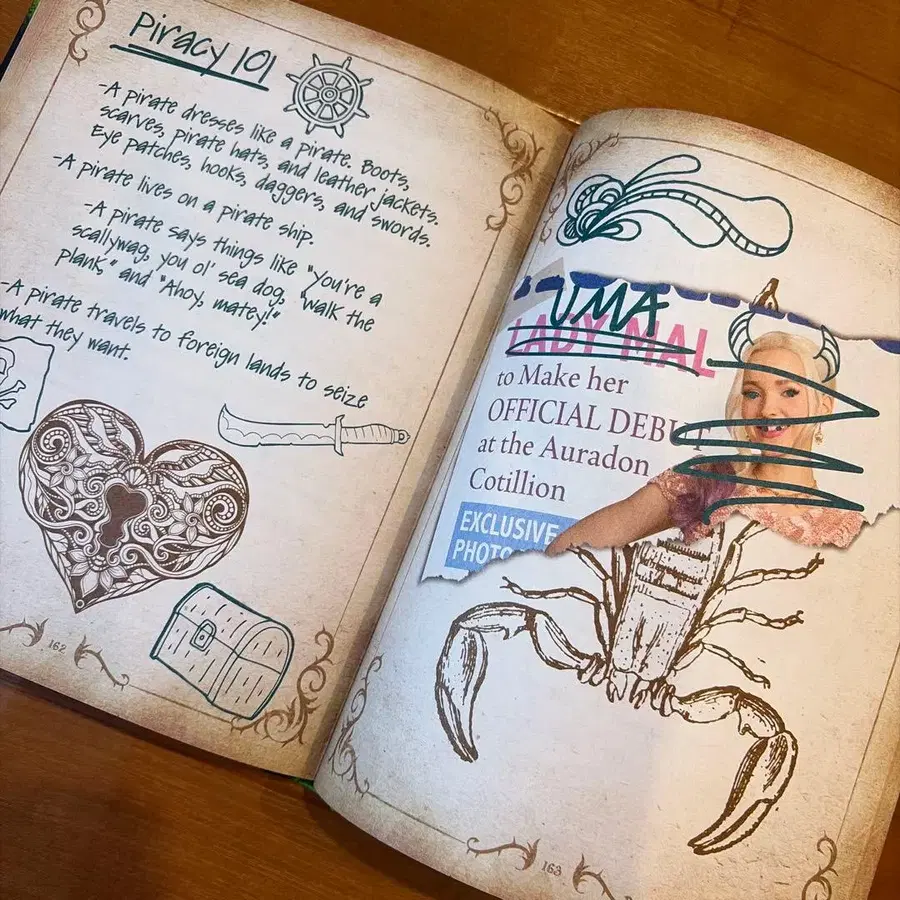 Piracy 101
-A pirate dresses like a pirate. Boots,
scarves, pirate hats, and leather jackets.
Eye patches, hooks, daggers, and swords.
-A pirate lives on a pirate ship.
-A pirate says things like "you're a
scallywag, you ol' sea dog, "walk the
plank," and "Ahoy, matey!"
-A pirate travels to foreign lands to seize
what they want.
162
UMA
LADY MAL
to Make her
OFFICIAL DEBUT
at the Auradon
Cotillion
EXCLUSIVE
PHOTO
163